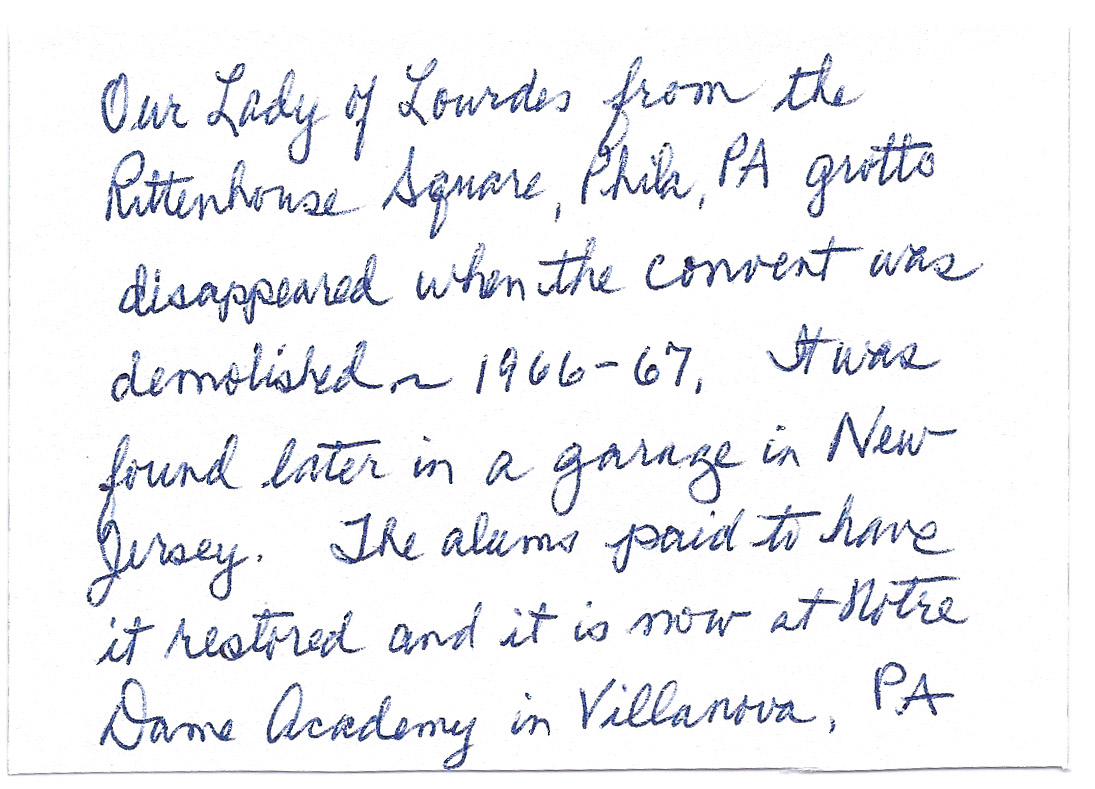 Our Lady of Lourdes from the
Rittenhouse Square, Phila, PA grotto
disappeared when the convent was
demolished ~ 1966-67. It was
found later in a garage in New
Jersey. The alums paid to have
it restored and it is now at Notre
Dame Academy in Villanova, PA